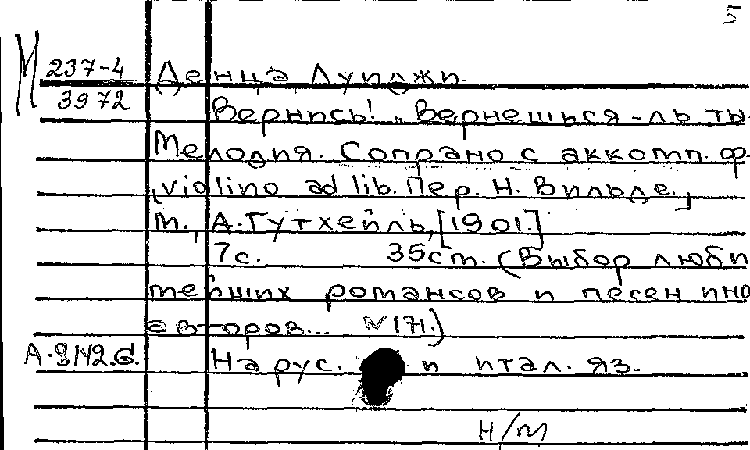 5
М 237-4
3972
Денца, Луиджи.
Вернись! "Вернешься-ль ты
Мелодия. Сопрано с аккомп. ф.
, violino ad lib. Пер. Н. Вильде.,
М., А. Гутхейль, [1901.]
7с. 35см. (Выбор люби
тейших романсов и песен ино
второв... №171.)
А.9142.G.
На рус. и итал. яз.
Н/м